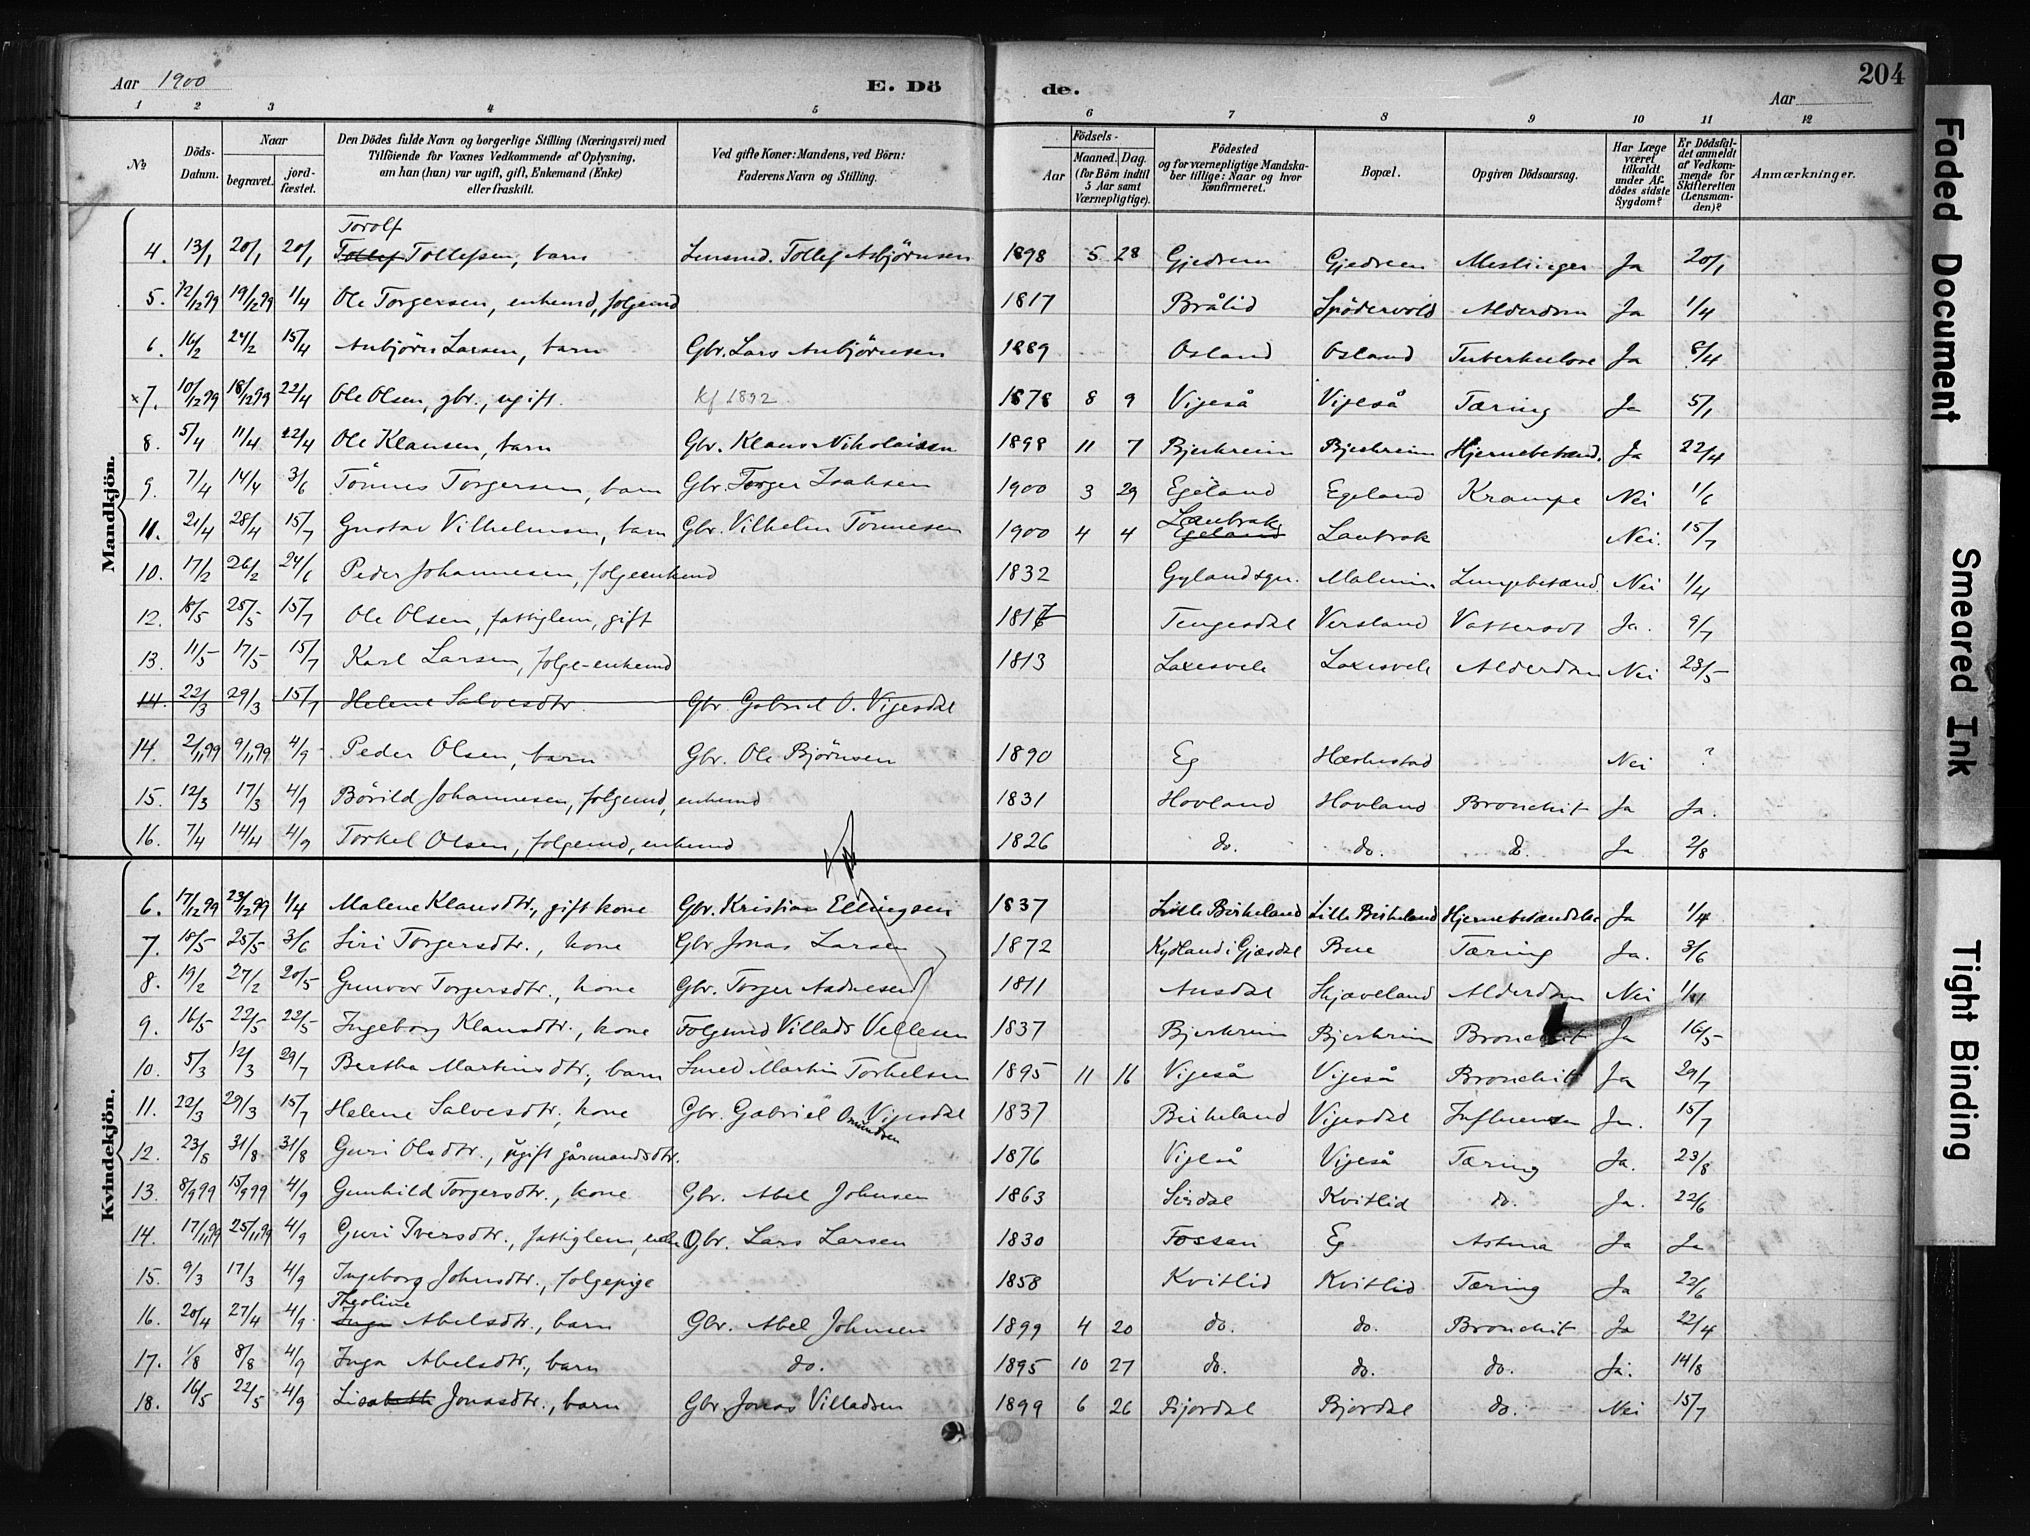 Aar 1900 E. Dö de. Aar 204
1 2 3 4 5 6 7 8 9 10 11 12
№ Döds-Datum. Naar begravet. jord-fæstet. Den Dödes fulde Navn og borgerlige Stilling (Næringsvei) med Tilföiende for Voxnes Vedkommende af Oplysning, om han (hun) var ugift, gift, Enkemand (Enke) eller fraskilt. Ved gifte Koner: Mandens, ved Börn: Faderens Navn og Stilling. Födsels- Aar Maaned. Dag. (for Börn indtil 5 Aar samt Værnepligtige). Födested og for værnepligtige Mandskaber tillige: Naar og hvor konfirmeret. Bopæl. Opgiven Dödsaarsag. Har Læge været tilkaldt under Afdödes sidste Sygdom? Er Dödsfaldet anmeldt af Vedkommende for Skifteretten (Lensmanden)? Anmærkninger.
Mandkjön.
Torolf
4. 13/1 20/1 20/1 Tollef Tollefsen, barn Lensmd. Tollef Asbjörnsen 1898 5 28 Gjedrem Gjedrem Meslinger Ja 20/1
5. 12/12 99 19/12 99 1/4 Ole Torgersen, enkemd, folgemd 1817 Brålid Spödervold Alderdom Ja 1/4
6. 16/2 24/2 15/4 Anbjörn Larsen, barn Gbr. Lars Anbjörnsen 1889 Osland Osland Tuberkulose Ja 8/4
x7. 10/12 99 18/12 99 22/4 Ole Olsen, gbr., ugift. Kf 1892 1878 8 9 Vigeså Vigeså Tæring Ja 5/1
8. 5/4 11/4 22/4 Ole Klausen, barn Gbr. Klaus Nikolaisen 1898 11 7 Bjerkreim Bjerkreim Hjernebetænd. Ja 22/4
9. 7/4 14/4 3/6 Tönnes Torgersen, barn Gbr. Torger Isaksen 1900 3 29 Egeland Egeland Krampe Nei 1/6
Lautvak
11. 21/4 28/4 15/7 Gustav Vilhelmsen, barn Gbr. Vilhelm Tönnesen 1900 4 4 Egeland Lautvak Nei. 15/7
10. 17/2 26/2 24/6 Peder Johannesen, folgeenkemd 1832 Gylandsgn. Malmin Lungebetænd. Nei 1/4
12. 18/5 25/5 15/7 Ole Olsen, fattiglem, gift 1817 Tengesdal Versland Vattersot Ja. 9/7
13. 11/5 17/5 15/7 Karl Larsen, folge-enkemd 1813 Laxesvele Laxesvele Alderdom Nei 23/5
14. 22/3 29/3 15/7 Helene Salvesdtr. Gbr. Gabriel O. Vigesdal
14. 2/11 99 9/11 99 4/9 Peder Olsen, barn Gbr. Ole Björnsen 1890 Eg Hærhestad Nei ?
15. 12/3 17/3 4/9 Börild Johannesen, folgemd, enkemd 1831 Hovland Hovland Bronchit Ja Ja.
16. 7/4 14/4 4/9 Torkel Olsen, folgemd, enkemd 1826 do. do. do. Ja 2/8
Kvindekjön.
6. 17/12 99 23/12 99 1/4 Malene Klausdtr., gift kone Gbr. Kristian Ellingsen 1837 Lille Birkeland Lille Birkeland Hjernebetændelse Ja 1/4
7. 18/5 25/5 3/6 Siri Torgersdtr., kone Gbr Jonas Larsen 1872 Kydland i Gjæsdal Bue Tæring Ja. 3/6
8. 19/2 27/2 20/5 Gunvor Torgersdtr., kone Gbr. Torger Aadnesen 1811 Ausdal Skjæveland Alderdom Nei
9. 16/5 22/5 22/5 Ingeborg Klausdtr., kone Folgemd Villads Vellesen 1837 Bjerkreim Bjerkreim Bronchit Ja 16/5
10. 5/3 12/3 29/7 Bertha Martinsdtr., barn Smed Martin Torkelsen 1895 11 16 Vigeså Vigeså Bronchit Ja 29/7
11. 22/3 29/3 15/7 Helene Salvesdtr., kone Gbr. Gabriel Omundsen Vigesdal 1837 Birkeland Vigesdal Influensa Ja. 15/7
12. 23/8 31/8 31/8 Guri Olsdtr., ugift gårmandsdtr. 1876 Vigeså Vigeså Tæring Ja. 23/8
13. 8/9 99 15/9 99 4/9 Gunhild Torgersdtr., kone Gbr. Abel Johnsen 1863 Sirdal Kvitlid do. Ja. 22/6
14. 17/11 99 25/11 99 4/9 Guri Iversdtr., fattiglem, enke Gbr. Lars Larsen 1830 Fossan Eg Astma Ja Ja
15. 9/3 17/3 4/9 Ingeborg Johnsdtr., folgepige 1858 Kvitlid Kvitlid Tæring Ja 22/6
Theoline
16. 20/4 27/4 4/9 Inga Abelsdtr., barn Gbr. Abel Johnsen 1899 4 20 do. do. Bronchit Ja 22/4
17. 1/8 8/8 4/9 Inga Abelsdtr., barn do. 1895 10 27 do. do. do. Ja. 14/8
18. 16/5 22/5 4/9 Lisabeth Jonasdtr., barn Gbr. Jonas Villadsen 1899 6 26 Bjordal Bjordal do. Nei 15/7
Faded Document
Smeared Ink
Tight Binding